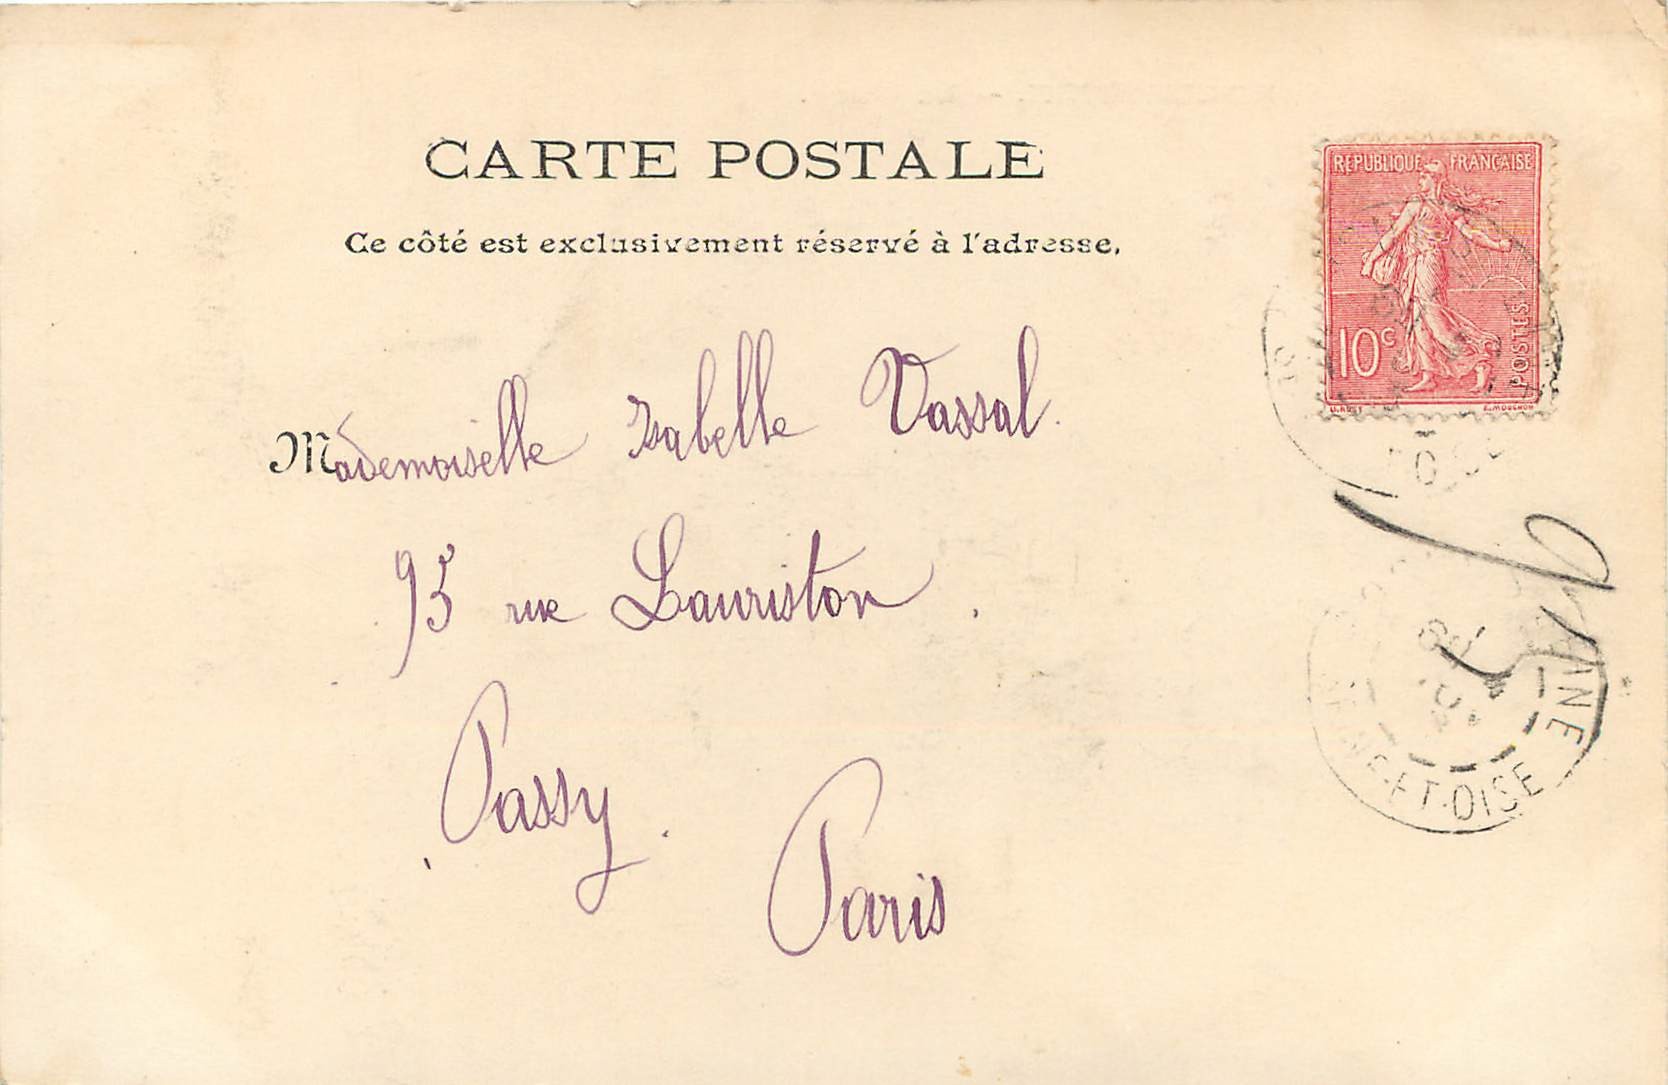 CARTE POSTALE
Ce côté est exclusivement réservé à l'adresse.
REPUBLIQUE FRANÇAISE
10c
POSTES
O. ROTY
E. MOUCHON
Mademoiselle Isabelle Vassal.
95 rue Lauriston.
Passy.
Paris
SEINE-ET-OISE